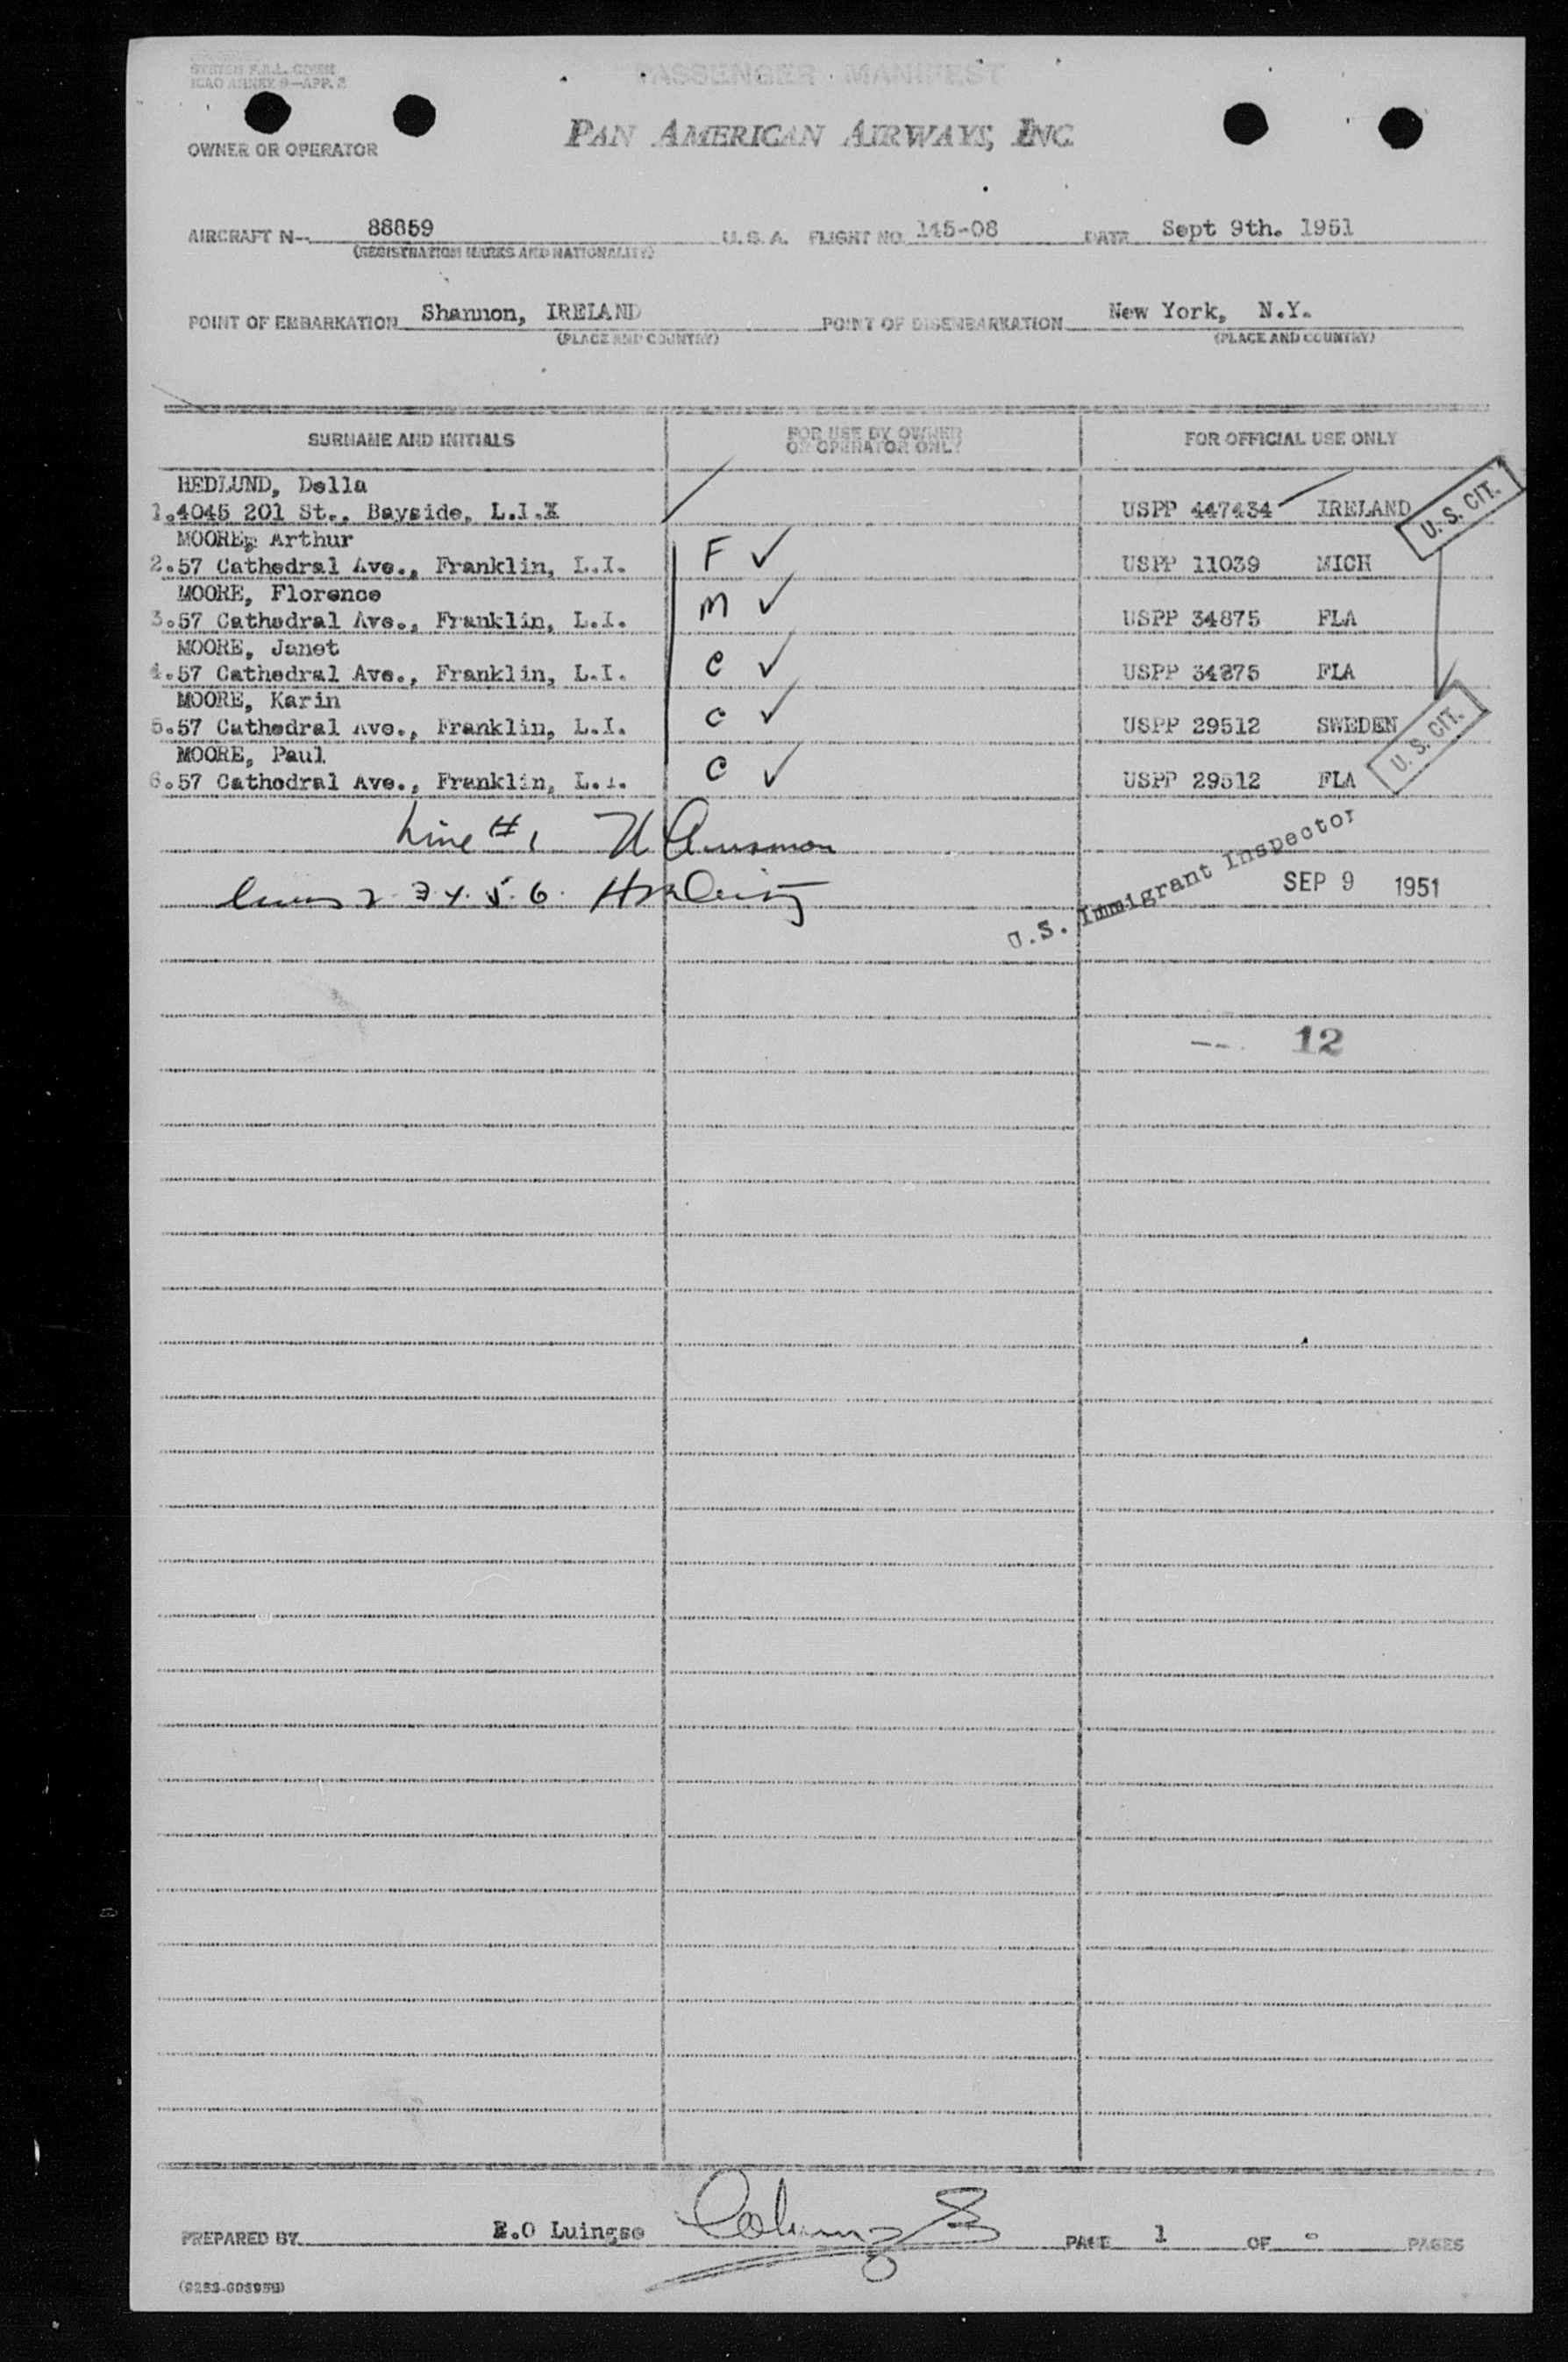 SYSTEM F.A.L.
ICAO ANNEX 9—APP. 2
PASSENGER MANIFEST
PAN AMERICAN AIRWAYS, INC.
OWNER OR OPERATOR
AIRCRAFT N-- 88859 U.S.A. FLIGHT NO. 145-08 DATE Sept 9th. 1951
(REGISTRATION MARKS AND NATIONALITY)
POINT OF EMBARKATION Shannon, IRELAND POINT OF DISEMBARKATION New York, N.Y.
(PLACE AND COUNTRY) (PLACE AND COUNTRY)
SURNAME AND INITIALS FOR USE BY OWNER OR OPERATOR ONLY FOR OFFICIAL USE ONLY
HEDLUND, Della
1.4045 201 St., Bayside, L.I. USPP 447434 IRELAND U.S. CIT.
MOORE, Arthur
2.57 Cathedral Ave., Franklin, L.I. F ✓ USPP 11039 MICH
MOORE, Florence
3.57 Cathedral Ave., Franklin, L.I. M ✓ USPP 34875 FLA
MOORE, Janet
4.57 Cathedral Ave., Franklin, L.I. C ✓ USPP 34875 FLA
MOORE, Karin
5.57 Cathedral Ave., Franklin, L.I. C ✓ USPP 29512 SWEDEN
MOORE, Paul
6.57 Cathedral Ave., Franklin, L.I. C ✓ USPP 29512 FLA U.S. CIT.
Line #1
Lines 2 3 4. 5. 6.
U.S. Immigrant Inspector
SEP 9 1951
12
PREPARED BY E.O Luingse PAGE 1 OF PAGES